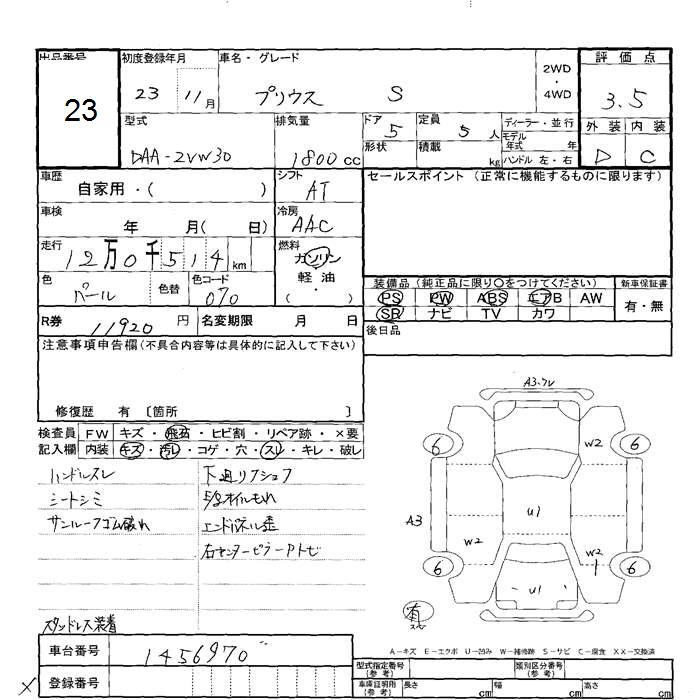 出品番号
23
初度登録年月
23 11月
車名・グレード
プリウス S
2WD
・
4WD
評価点
3.5
外装 内装
D C
型式
DAA-ZVW30
排気量
1800cc
ドア
5
形状
定員
5人
積載
kg
ディーラー・並行
モデル年式 年
ハンドル 左・右
車歴
自家用・( )
シフト
AT
車検
年 月( 日)
冷房
AAC
走行
12万0千514km
燃料
ガソリン
軽油
( ・ )
色
パール
色替
色コード
070
R券
11920円
名変期限 月 日
セールスポイント(正常に機能するものに限ります)
装備品(純正品に限り○をつけてください)
PS PW ABS エアB AW
SR ナビ TV カワ
新車保証書
有・無
後日品
注意事項申告欄(不具合内容等は具体的に記入して下さい)
修復歴 有 〔箇所 〕
検査員
記入欄
FW キズ・飛石・ヒビ割・リペア跡・×要
内装 キズ・汚レ・コゲ・穴・スレ・キレ・破レ
ハンドルスレ
シートシミ
サンルーフゴム破れ
下廻りサビ
オイルもれ
エンドパネル歪
右センターピラーアトビ
スタッドレス装着
A3
6
6
W2
U1
A3
W2
W2
6
6
U1
有
A-キズ E-エクボ U-凹み W-補修跡 S-サビ C-腐食 XX-交換済
車台番号
1456970
×
登録番号
型式指定番号
(参考)
類別区分番号
(参考)
車庫証明用
(参考)
長さ cm
幅 cm
高さ cm